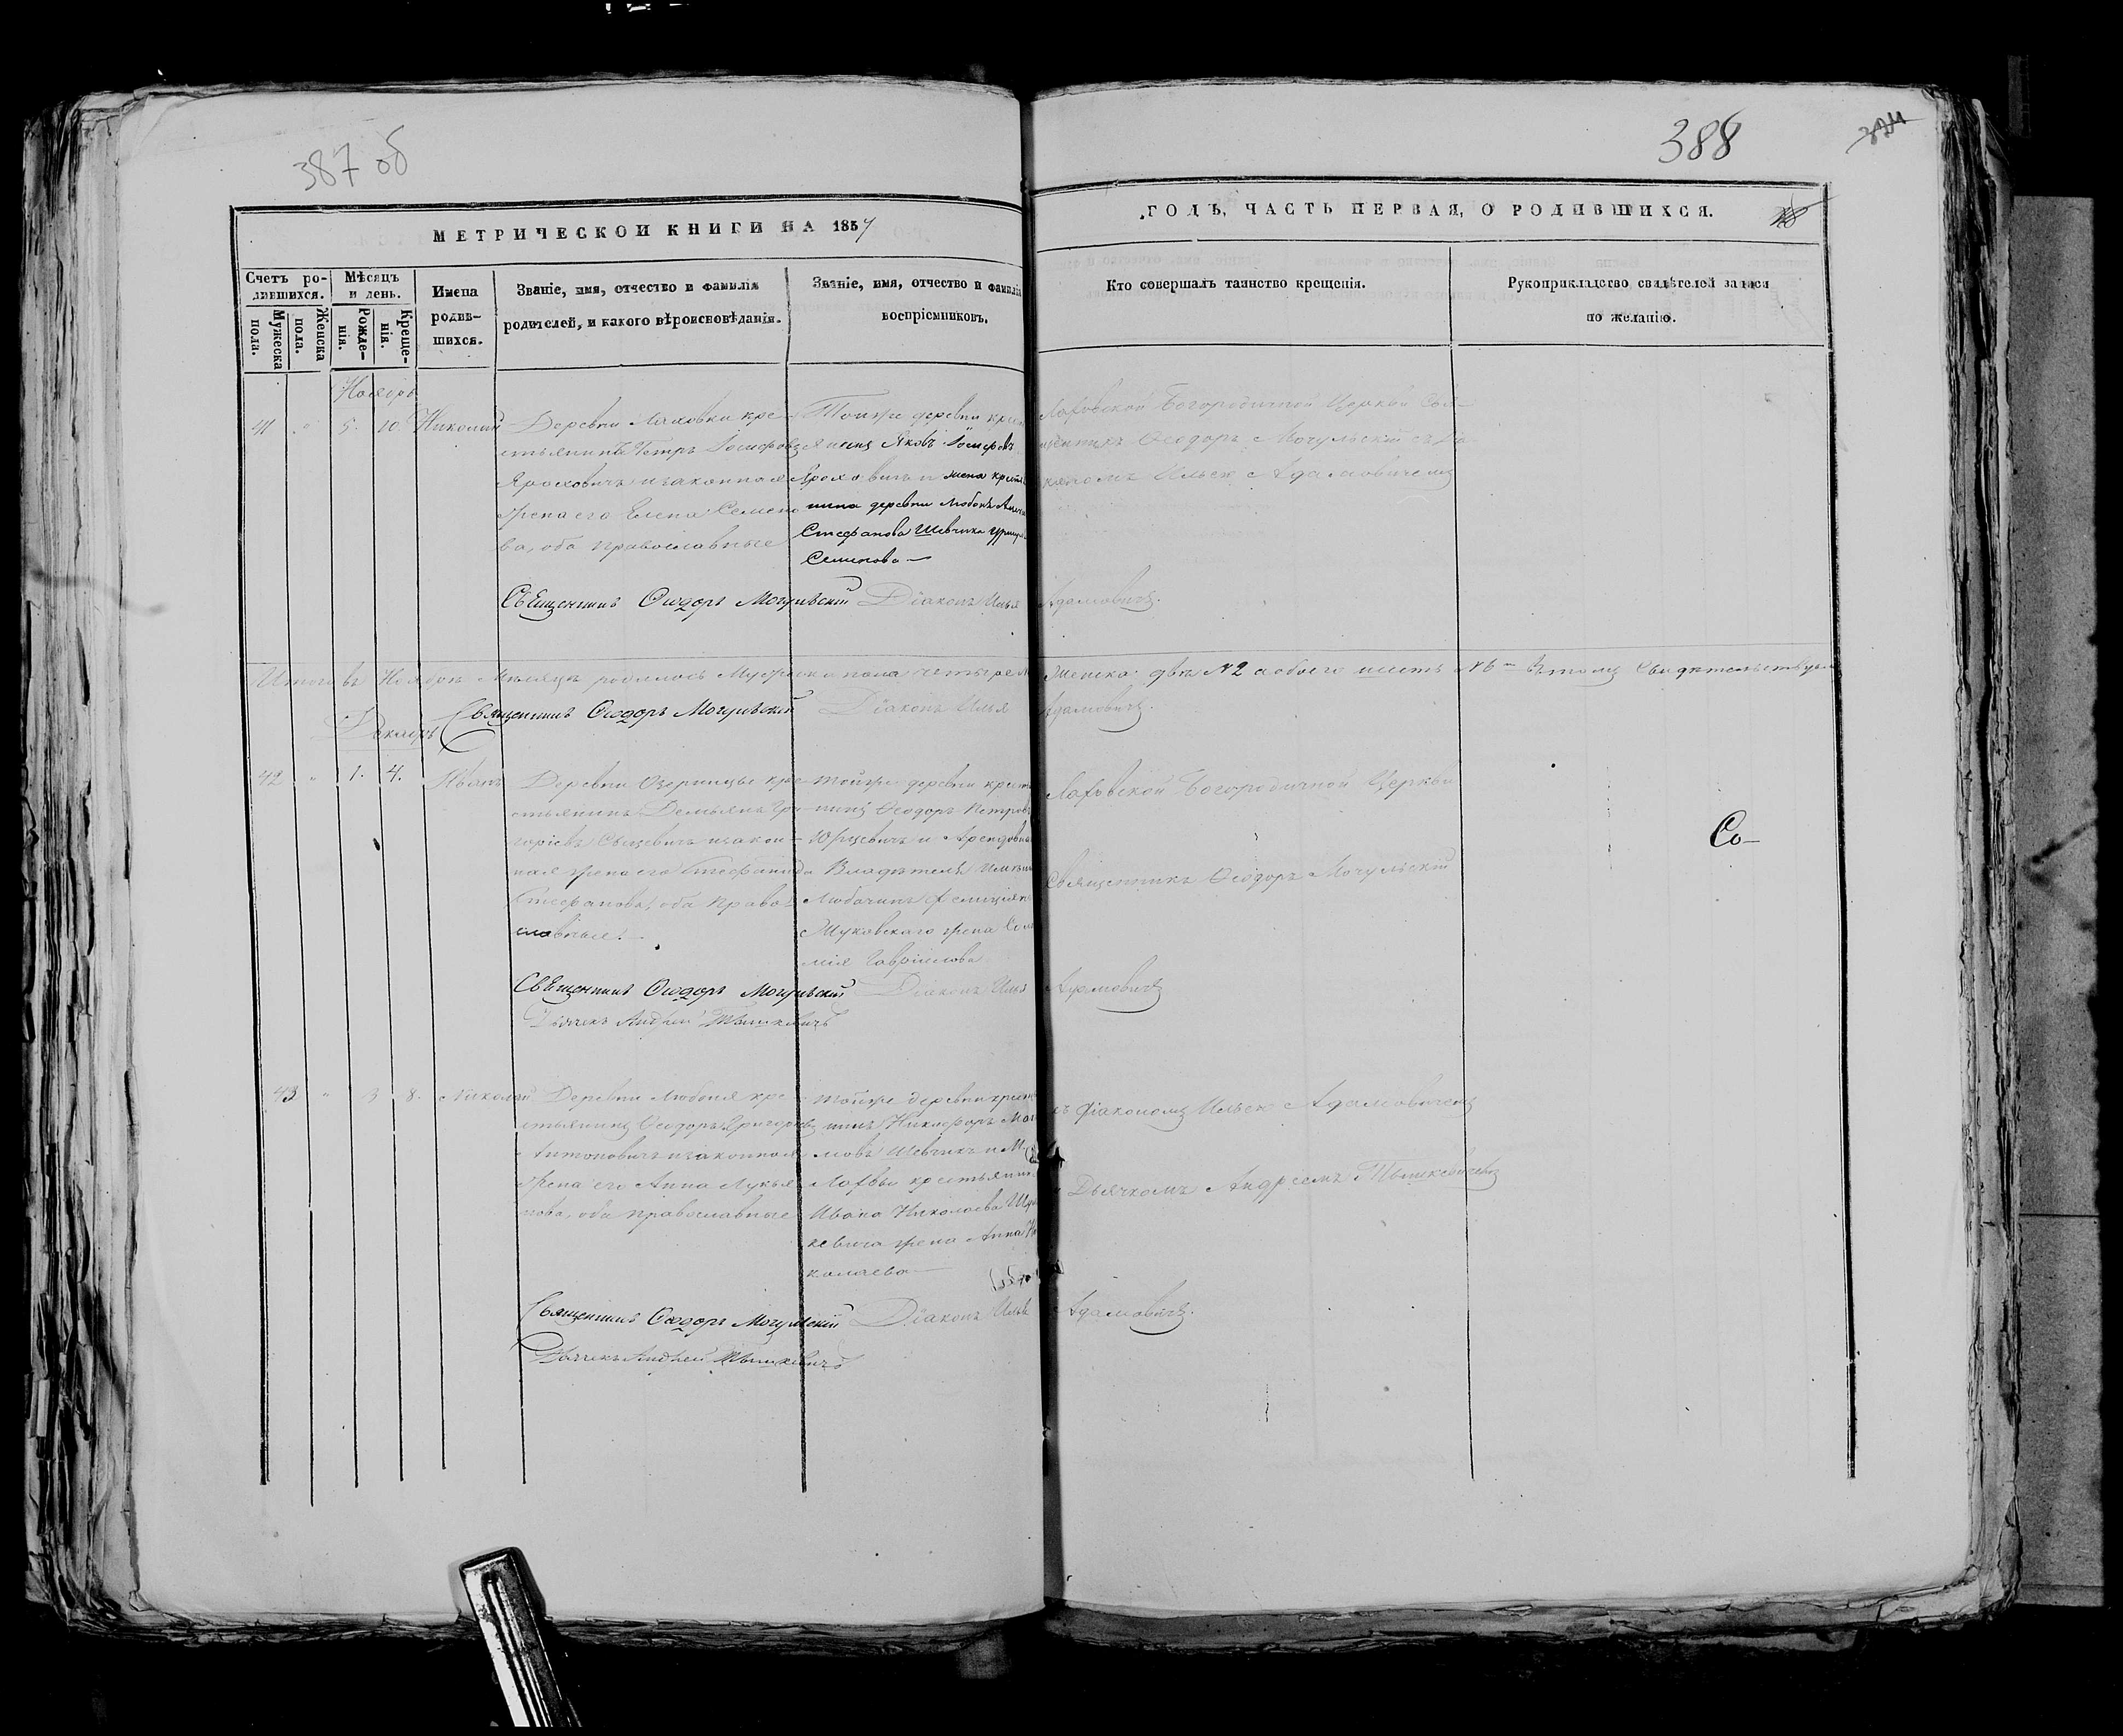 387 об
388
МЕТРИЧЕСКОЙ КНИГИ НА 1857
ГОДЪ, ЧАСТЬ ПЕРВАЯ, О РОДИВШИХСЯ.
Счетъ родившихся.
Мужеска пола.
Женска пола.
Мѣсяцъ и день.
Рожденія.
Крещенія.
Имена родившихся.
Званіе, имя, отчество и фамилія
родителей, и какого вѣроисповѣданія.
Званіе, имя, отчество и фамилія
воспріемниковъ.
Кто совершалъ таинство крещенія.
Рукоприкладство свидѣтелей записи
по желанію.
Ноябрь
41 " 5. 10. Николай
Деревни Ляховки кре-
стьянинъ Петръ Іосифовъ
Ярохович и законная
жена его Елена Семено-
ва, оба православные
Тойже деревни
Яковъ Іосифовъ
Ярохович и жена
деревни Любонь
Стефанова Шевчика
Семенова
Лаховской Богородичной Церкви Свя-
щенникъ Ѳеодоръ Мочульскій съ Діа-
кономъ Ильею Адамовичемъ
Священникъ Ѳеодоръ Мочульскій Діаконъ Илья Адамовичъ.
Итого въ Ноябрѣ Мѣсяцѣ родилось Мужеска пола четыре Женска двѣ №2 а обоего шесть №6 въ томъ свидѣтельствуемъ
Священникъ Ѳеодоръ Мочульскій Діаконъ Илья Адамовичъ.
Декабрь
42 " 1. 4. Иванъ
Деревни Озерницы кре-
стьянинъ Демьянъ Гри-
горіевъ и закон-
ная жена его Стефанида
Стефанова, оба право-
славные.
тойже деревни
Ѳеодоръ Петровъ
Юрцевичъ и
Владѣтеля
Любачинъ
жена
Гавріилова
Лаховской Богородичной Церкви
Священникъ Ѳеодоръ Мочульскій
Со-
Священникъ Ѳеодоръ Мочульскій Діаконъ Илья Адамовичъ
Дьячекъ Андрей Тышкевичъ
43 " 3 8. Николай
Деревни Любоня кре-
стьянинъ Ѳеодоръ Григорьевъ
Антоновичъ и законная
жена его Анна Лукья-
нова, оба православные
тойже деревни
Никифоръ
Шевчикъ и М.
Лахвы крестьянина
Ивана Николаева
кевича жена Анна Ни-
колаева
съ Діакономъ Ильею Адамовичемъ
и Дьячкомъ Андреемъ Тышкевичемъ
Священникъ Ѳеодоръ Мочульскій Діаконъ Илья Адамовичъ.
Дьячекъ Андрей Тышкевичъ